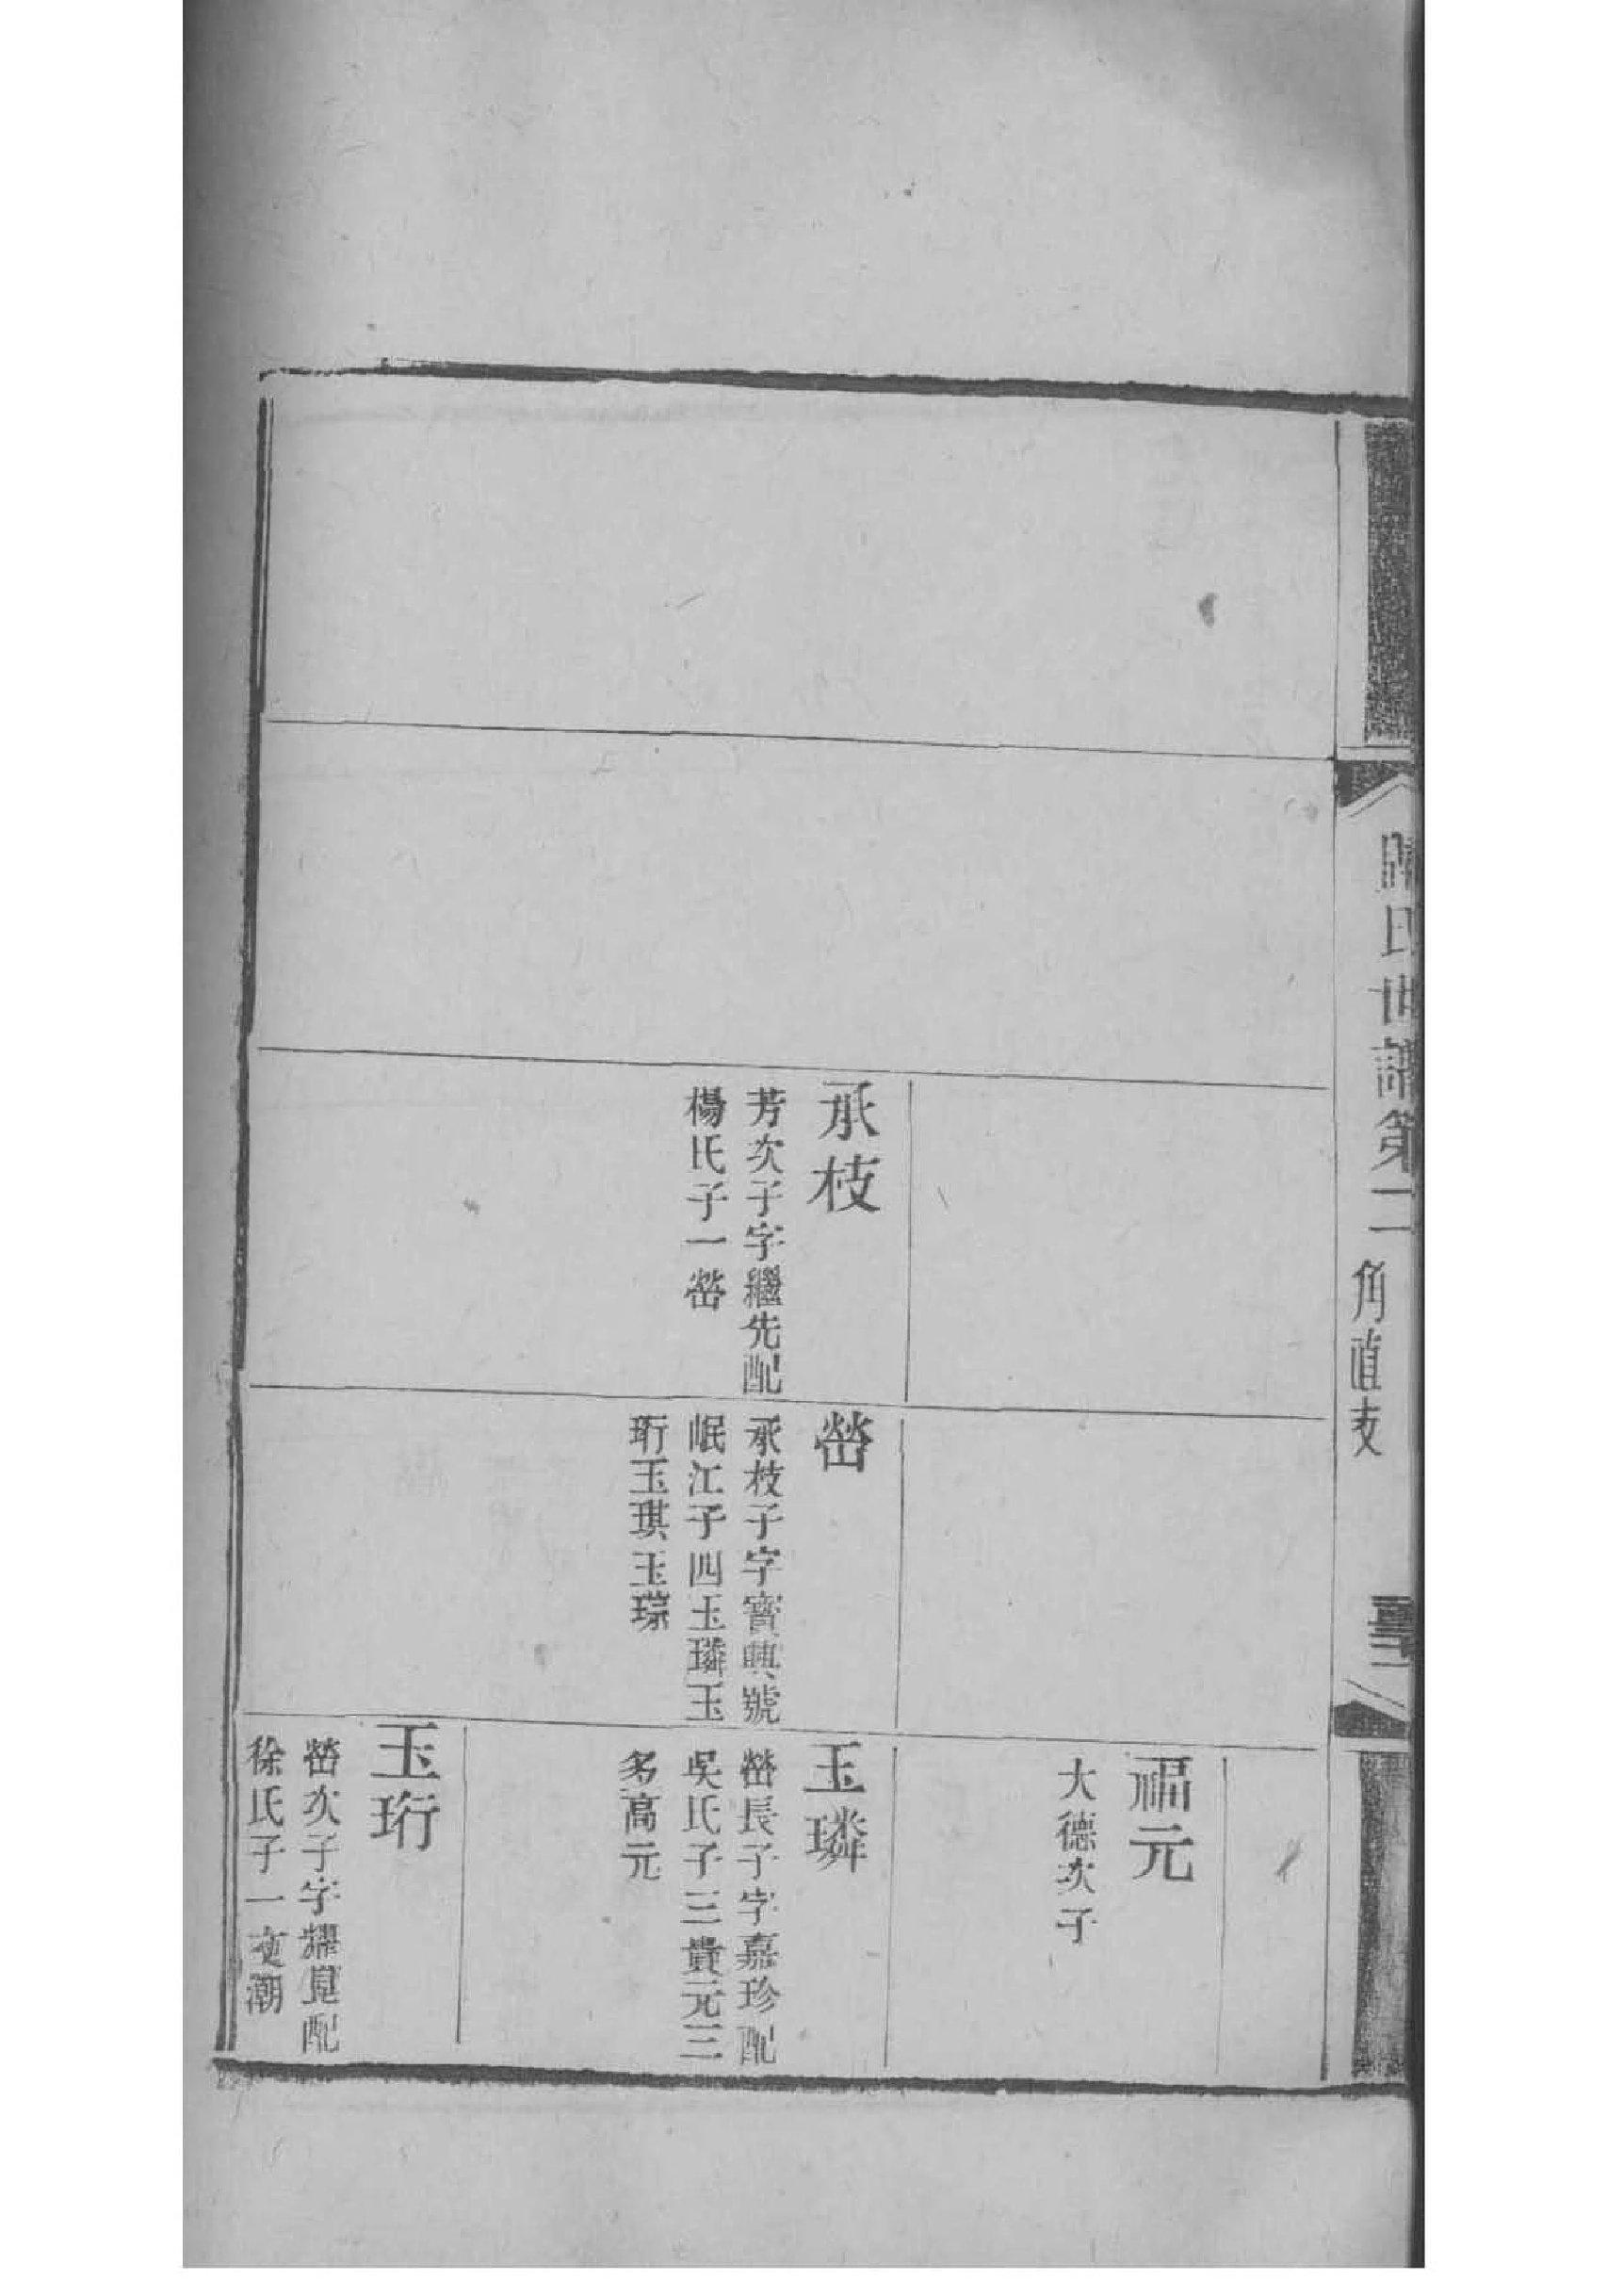 氏世譜第二
角直支
承枝
芳次子字繼先配
楊氏子一嶅
嶅
承枝子字寶興號
岷江子四玉璘玉
珩玉琪玉琮
福元
大德次子
玉璘
嶅長子字嘉珍配
吳氏子三貴元三
多高元
玉珩
嶅次子字耀崑配
徐氏子一文潮